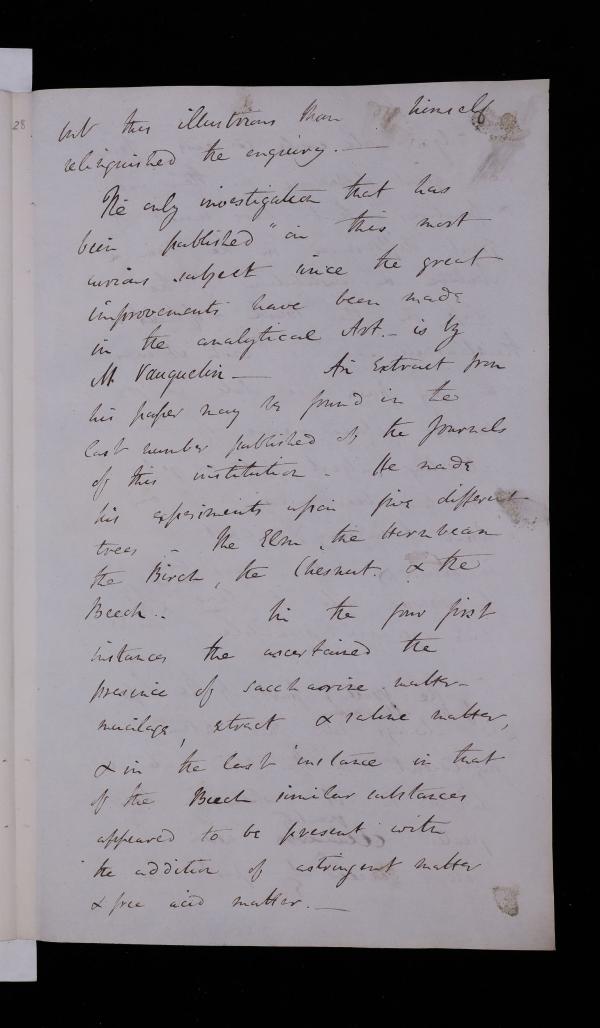 28
but this illustrious Man himself
relinquished the enquiry. —
The only investigation that has
been published "on this most
curious subject since the great
improvements have been made
in the analytical Art. — is by
M. Vauquelin — An Extract from
his paper may be found in the
last number published of the Journals
of this institution - He made
his experiments upon five different
trees - The Elm, the Hornbeam
the Birch, the Chesnut. & the
Beech.. In the four first
instances the ascertained the
presence of saccharine matter-
mucilage, extract & saline matter,
& in the last instance in that
of the Beech similar substances
appeared to be present with
the addition of astringent matter
& free acid matter. —